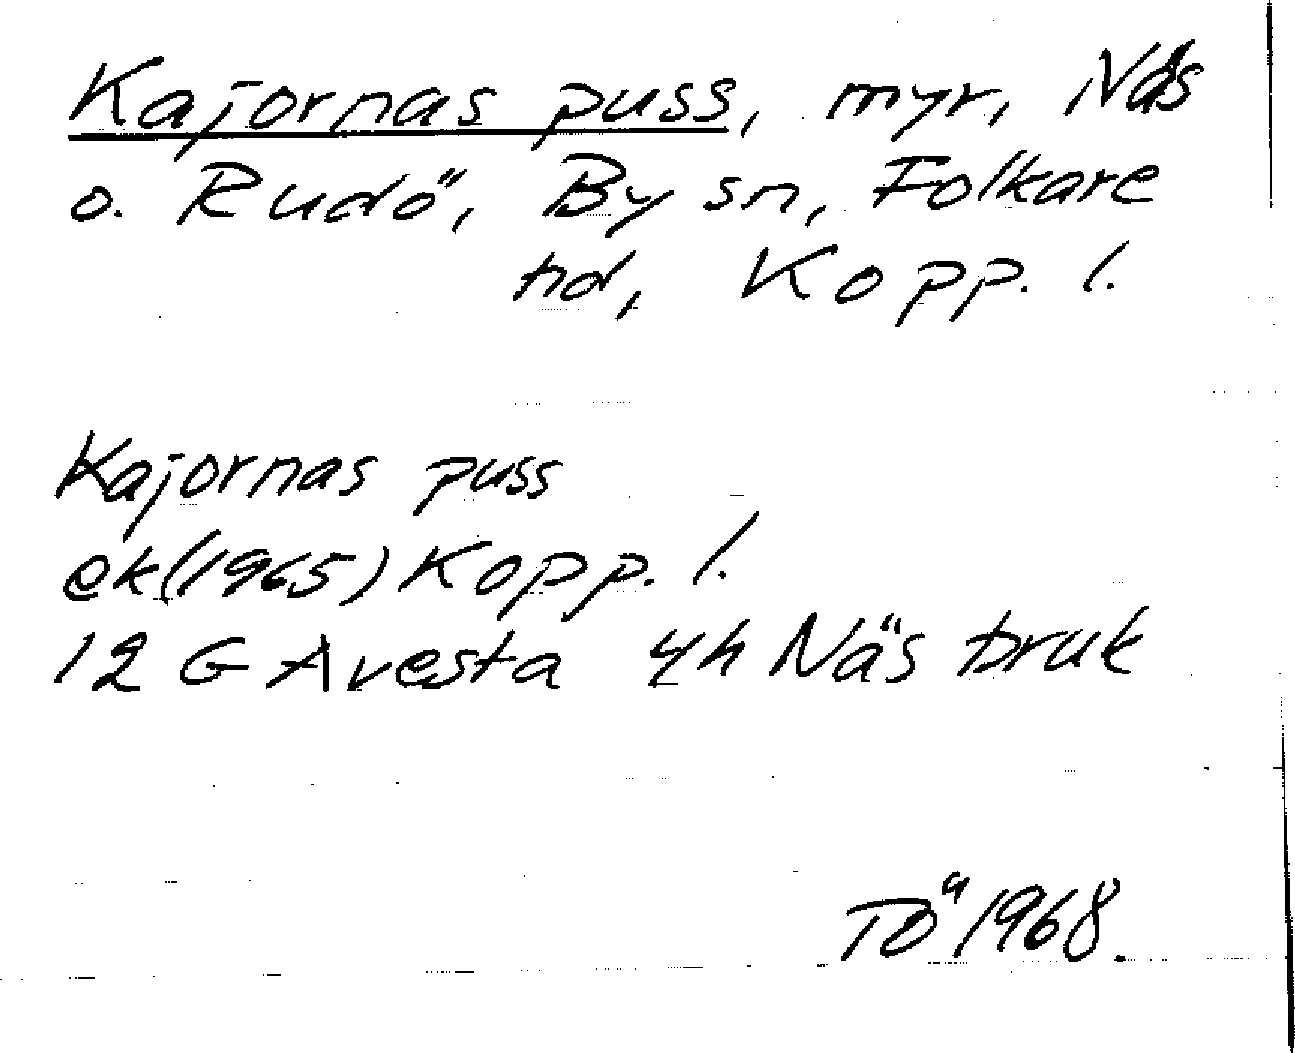 Kajornas puss, myr, Näs
o. Rudö, By sn, Folkare
hd, Kopp. l.
Kajornas puss
ek(1965) Kopp. l.
12 G Avesta 4h Näs bruk
TÖ 1968.